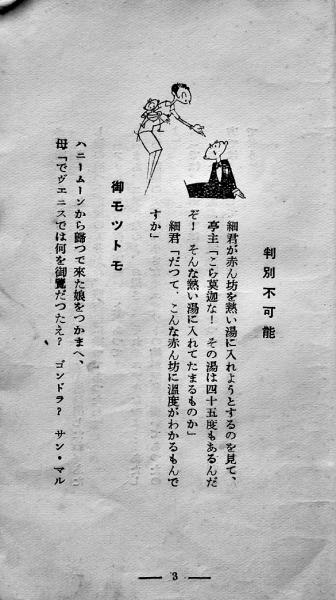 判別不可能
細君が赤ん坊を熱い湯に入れようとするのを見て、
亭主「こら莫迦な！　その湯は四十五度もあるんだ
ぞ！　そんな熱い湯に入れてたまるものか」
細君「だつて、こんな赤ん坊に溫度がわかるもんで
すか」
御モツトモ
ハニームーンから歸つて來た娘をつかまへ、
母「でヴェニスでは何を御覽だつたえ？　ゴンドラ？　サン・マル
3